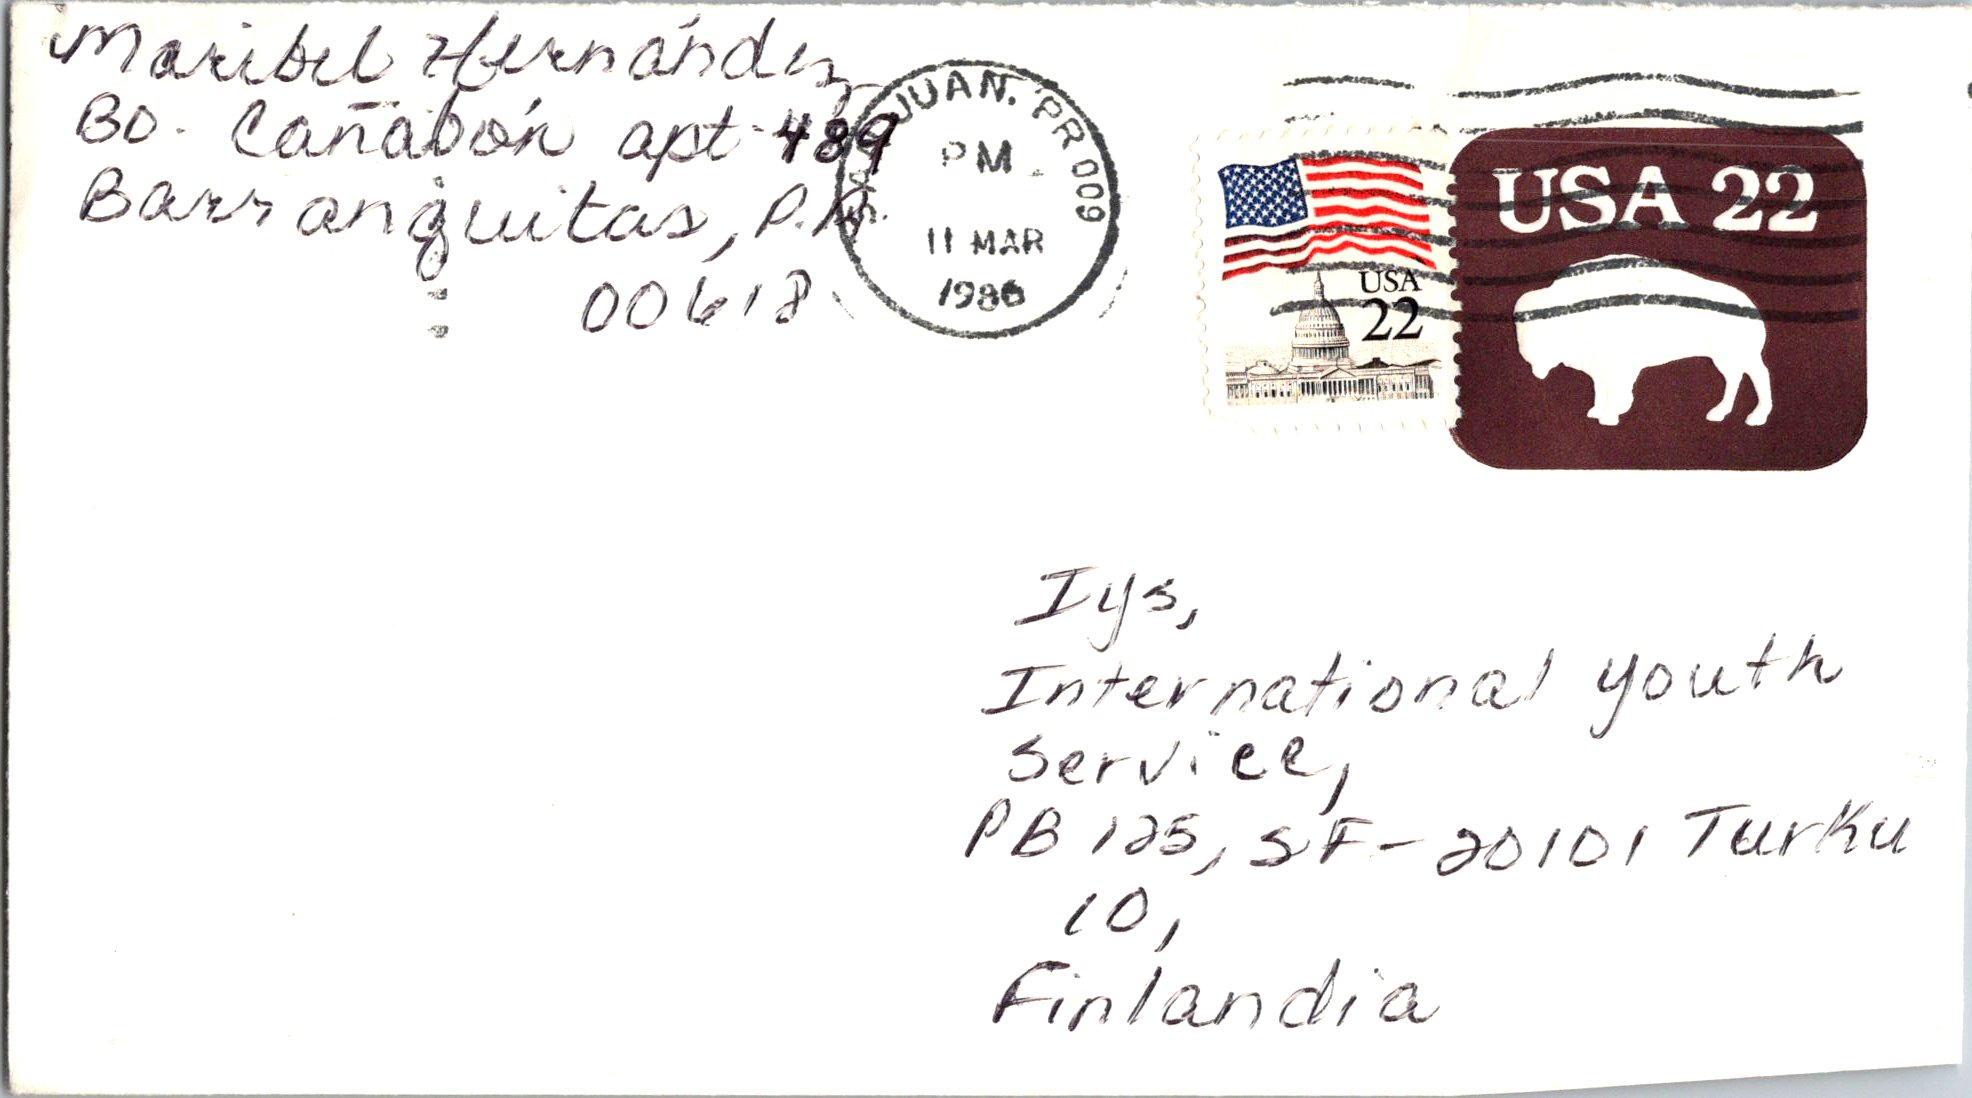 Maribel Hernández
Bo. Cañabón apt. 489
Barranquitas, P.R.
00618
JUAN, PR 009
PM
11 MAR
1986
USA
22
USA 22
Iys,
International youth
Service,
PB 125, SF-20101 Turku
10,
Finlandia